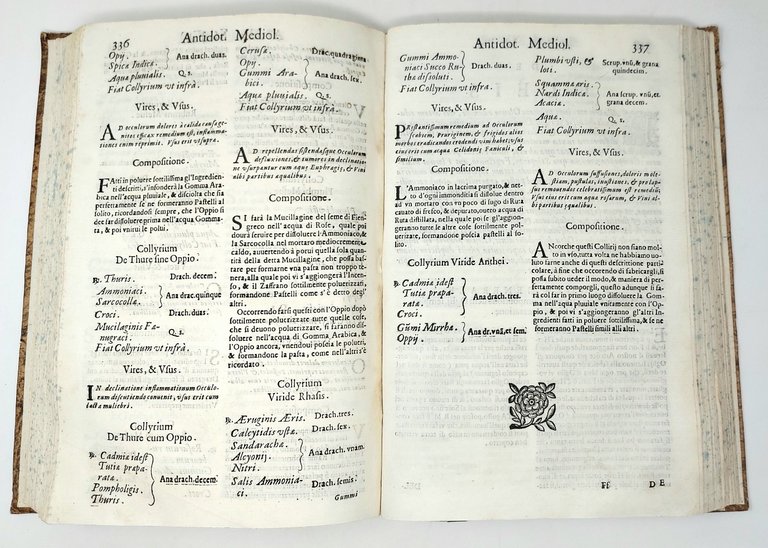 336
Antidot. Mediol.
Opij.
Spicæ Indicæ.
Ana drach. duas.
Aquæ pluuialis. Q. s.
Fiat Collyrium vt infrà.
Vires, & Vsus.
AD occulorum dolores à calida causa ge-
nitos efficax remedium est, inflamma-
tiones enim reprimit. Vsus erit vt supra.
Compositione.
FAtti in poluere sottilissima gl'Ingredien-
ti descritti, s'infonderà la Gomma Arabica
nell'acqua pluuiale, & disciolta che sia
perfettamente se ne formeranno Pastelli al
solito, ricordando sempre, che l'Oppio si
dee far dissoluere prima nell'acqua Gomma-
ta, & poi vnirlo le polui.
Collyrium
De Thure sine Oppio.
℞. Thuris. Drach. decem.
Ammoniaci
Sarcocollæ.
Ana drac. quinque
Croci. Drach. duas.
Mucilaginis Fæ-
nugræci. Q. s.
Fiat Collyrium vt infrà.
Vires, & Vsus.
IN declinatione inflammationum Oculo-
rum discutiendo conuenit, vsus erit cum
lacte muliebri.
Collyrium
De Thure cum Oppio.
℞. Cadmiæ idest
Tutiæ præpa-
ratæ.
Pompholigis.
Thuris.
Ana drach. decem.
Cerusæ. Drac. quadraginta
Opij.
Gummi Ara-
bici.
Ana drach. sex.
Aquæ pluuialis. Q. s.
Fiat Collyrium vt infrà.
Vires, & Vsus.
AD repellendas sistendasque Occulorum
defluxiones, & tumores in declinatio-
ne vsurpantur cum aqua Euphragiæ, & Vini
albi partibus æqualibus.
Compositione.
SI farà la Mucillagine del seme di Fien-
greco nell'acqua di Rose, quale poi
dourà seruire per dissoluere l'Ammoniaco, &
la Sarcocolla nel mortaro mediocremente
caldo, auuertendo à porui quella sola quan-
tità della detta Mucillagine, che possa bas-
tare per formarne vna pasta non troppo te-
nera, alla quale poi vi s'aggiongerà l'Incen-
so, & il Zaffrano sottilissimo poluerizzati,
formandone Pastelli come s'è detto degl'
altri.
Occorrendo farsi questi con l'Oppio dopò
sottilmente poluerizzate tutte quelle cose,
che si deuono poluerizzare, si faranno dis-
soluere nell'acqua di Gomma Arabica, &
l'Oppio ancora, vnendoui posсia le polueri,
& formandone la pasta, come nell'altri s'è
ricordato.
Collyrium
Viride Rhasis.
℞. Æruginis Æris. Drach. tres.
Calcytidis vstæ. Drach. sex.
Sandarachæ
Alcyonij.
Nitri.
Ana drach. vnam.
Salis Ammonia-
ci. Drach. semis.
Gummi
Antidot. Mediol.
337
Gummi Ammo-
niaci Succo Ru-
thæ dissoluti.
Drach. duas.
Fiat Collyrium vt infrà.
Vires, & Vsus.
PRæstantissimum remedium ad Occulorum
scabiem, Pruriginem, & frigidos alios
morbos eradicandos credendi vim habet, vsus
eius erit cum aqua Celidonij, Fæniculi, &
similium.
Compositione.
L'Ammoniaco in lacrima purgato, & net-
to d'ogni immonditia si dissolue dentro
vn mortaro con vn poco di sugo di Ruta
cauato di fresco, & depurato, ouero acqua di
Ruta distillata, nella quale poi gli s'aggion-
geranno tutte le altre cose sottilmente pol-
uerizzate, formandone pastelli al so-
lito.
Collyrium Viride Anthei.
℞. Cadmiæ idest
Tutiæ præpa-
ratæ.
Croci.
Ana drach. tres.
Gũmi Mirrhæ.
Oppij.
Ana dr. vnã, et sem.
Plumbi vsti, &
loti.
Scrup. vnũ, & grana
quindecim.
Squammæ æris
Nardi Indicæ.
Acaciæ.
Ana scrup. vnũ, et
grana decem.
Aquæ. Q. s.
Fiat Collyrium vt infra.
Vires, & Vsus.
AD Occulorum suffusiones, dolores mole-
stiam, pustulas, inustiones, & prolap-
sus remouendos celebratissimum est remedium.
Vsus eius erit cum aqua rosarum, & Vini
albi partibus æqualibus.
Compositione.
ANcorche questi Collirij non siano molto
in vso, tutta volta ne habbiamo vo-
luto farne anche di questi descrittione parti-
colare, à fine che occorendo di fabricarli, si
possa subito veder il modo, & maniera di
perfettamente comporgli, questo adunque si fa-
rà col far in primo luogo dissoluere la Gom-
ma nell'aqua pluuiale vnitamente con l'Op-
pio, & poi vi s'aggiongeranno gl'altri Ingre-
dienti fatti in poluere sottilissima, & se ne
formeranno Pastelli simili alli altri.
Ff
DE